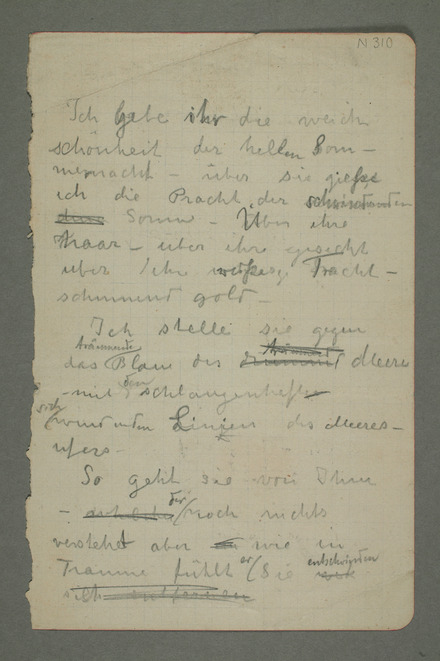 N 310
Ich gebe ihr die weich
schönheit der hellen Som-
mernacht - über sie giesse
ich die Pracht der schwindenden
Sonne - Über ihre
Haar - über ihre gesicht
über ihre weisse Tracht -
schimmernd gold -
Ich stelle sie gegen
träumende
das Blau des Meeres
- mit den schlangenhafte
sich windenden Linien des Meeres-
ufers -
So geht sie von Ihm
- der noch nichts
versteht aber wie in
Traume fühlt er Sie entschwinden